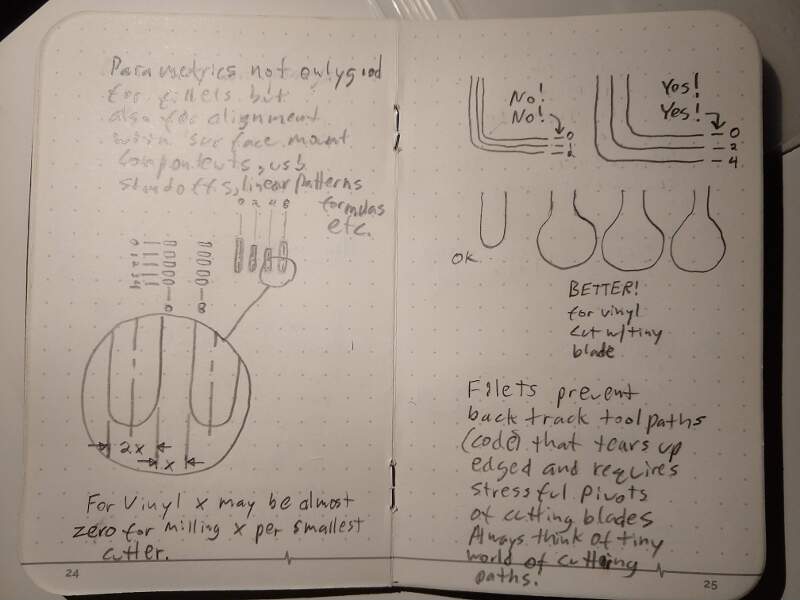 Parametrics not only good
for fillets but
also for alignment
with surface mount
components, usb
standoffs, linear patterns
formulas
etc.
0 2 4 8
0
1
2
3
4
0
8
2x
x
For Vinyl x may be almost
zero for milling x per smallest
cutter.
24
No!
No!
0
2
Yes!
Yes!
0
2
4
OK
BETTER!
for vinyl
cut w/tiny
blade
Fillets prevent
back track tool paths
(code) that tears up
edged and requires
stressful pivots
of cutting blades
Always think of tiny
world of cutting
paths.
25